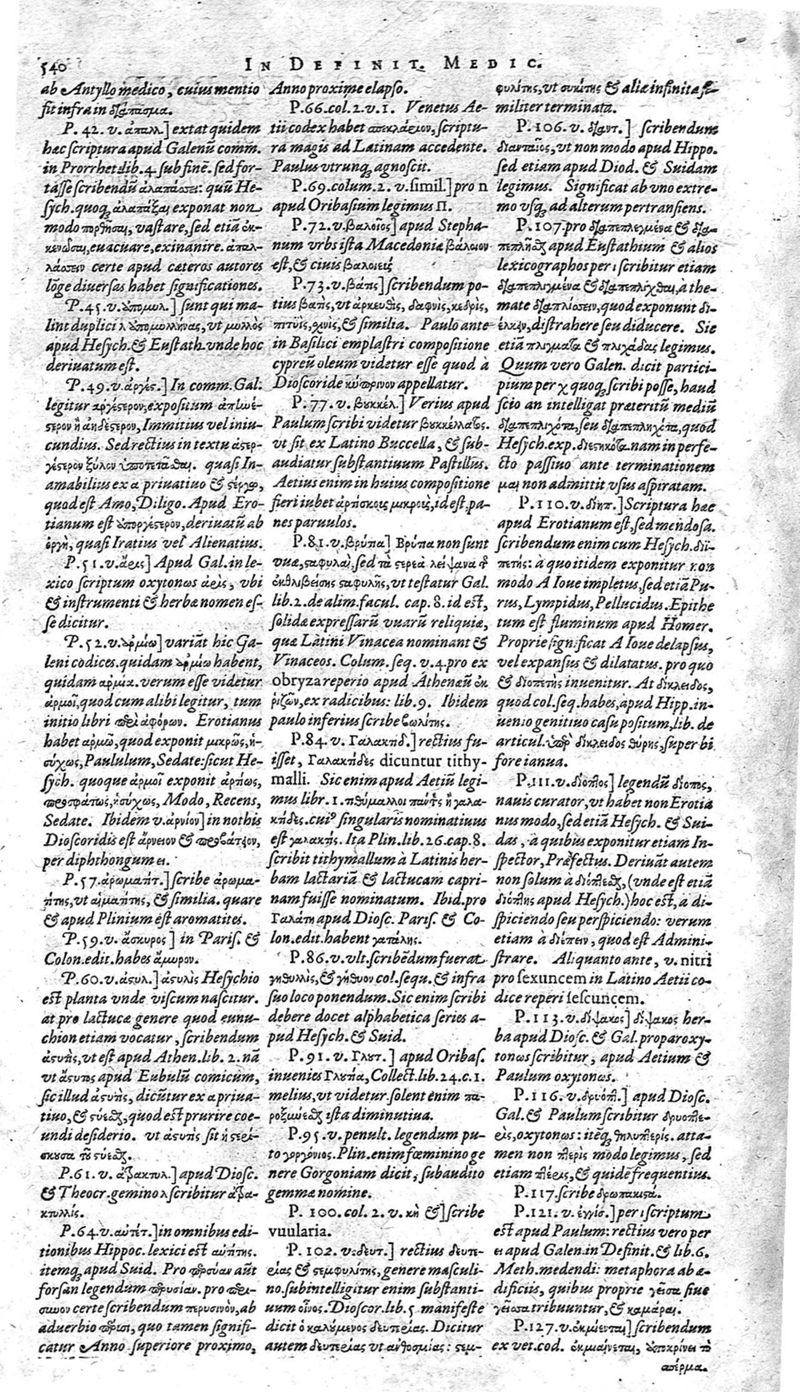 540
IN DEFINIT. MEDIC.
ab Antyllo medico, cuius mentio
fit infra in
P. 42. v. ἀπαλ.] extat quidem
hæc scriptura apud Galenũ comm.
in Prorrhet.lib.4.sub finẽ. sed for-
tasse scribendũ ἀλαπάσσει: quũ He-
sych.quoq; ἀλαπάξαι exponat non
modo πορθῆσαι, vastare, sed etiã ἐκ-
κενῶσαι, euacuare, exinanire. ἀπαλ-
λάσσειν certe apud cæteros autores
lõge diuersas habet significationes.
P. 45. v. ὑπομυλ.] sunt qui ma-
lint duplici λ ut μυλλὸς
apud Hesych.& Eustath. vnde hoc
deriuatum est.
P. 49. v. ἀργέσ.] In comm. Gal.
legitur expositum
Immitius vel iniu-
cundius. Sed rectius in textu
ξύλον quasi In-
amabilius ex α priuatiuo & στέργω,
quod est Amo, Diligo. Apud Ero-
tianum est deriuatũ ab
ὀργὴ, quasi Iratius vel Alienatius.
P. 51. v. ἄρις] Apud Gal. in le-
xico scriptum oxytonως ἀρὶς, vbi
& instrumenti & herbæ nomen es-
se dicitur.
P. 52. v. variãt hic Ga-
leni codices. quidam habent,
quidam verum esse videtur
ἁρμοῖ, quod cum alibi legitur, tum
initio libri ἀφόρων. Erotianus
habet ἁρμῷ, quod exponit μικρῶς, ἡ-
σύχως, Paululum, Sedate: sicut He-
sych. quoque ἁρμοῖ exponit ἀρτίως,
προσφάτως, ἡσύχως, Modo, Recens,
Sedate. Ibidem v. ἀρνίον] in nothis
Dioscoridis est ἄρνειον & προβάτειον,
per diphthongum ει.
P. 57. scribe ἀρωμα-
τίτης, vt αἱματίτης, & similia. quare
& apud Plinium est aromatites.
P. 59. v. ἄσκυρος] in Paris. &
Colon.edit. habes ἄμωρον.
P. 60. v. ἀσυλ.] ἀσυλὶς Hesychio
est planta vnde viscum nascitur.
at pro lactucæ genere quod eunu-
chion etiam vocatur, scribendum
ἀσυτὶς, vt est apud Athen. lib. 2. nã
vt ἄσυτις apud Eubulũ comicum,
sic illud ἀσυτὶς, dicũtur ex α priua-
tiuo, & στύειν, quod est prurire coe-
undi desiderio. vt ἀσυτὶς sit ἡ στερί-
σκουσα τοῦ στύειν.
P. 61. v. apud Diosc.
& Theocr. gemino λ scribitur
κτυλλίς.
P. 64. v. in omnibus edi-
tionibus Hippoc. lexici est
itemq; apud Suid. Pro aũt
forsan legendum pro
certe scribendum περυσινὸν, ab
aduerbio πέρυσι, quo tamen signifi-
catur Anno superiore proximo,
Anno proxime elapso.
P. 66. col. 2. v. 1. Venetus Ae-
tii codex habet scriptu-
ra magis ad Latinam accedente.
Paulus vtrunq; agnoscit.
P. 69. colum. 2. v. simil.] pro n
apud Oribasium legimus Π.
P. 72. v. βαλοιος] apud Stepha-
num vrbs ista Macedoniæ βάλοιον
est, & ciuis βαλοιεύς.
P. 73. v. βάπις] scribendum po-
tius βατὶς, vt ἀρκευθὶς, δαφνὶς, κεδρὶς,
πιτυῒς, & similia. Paulo ante
in Basilici emplastri compositione
cypreũ oleum videtur esse quod à
Dioscoride κύπρινον appellatur.
P. 77. v. βυκκέλ.] Verius apud
Paulum scribi videtur βυκκελλᾶτος.
vt sit ex Latino Buccella, & sub-
audiatur substantiuum Pastillus.
Aetius enim in huius compositione
fieri iubet ἀρτίσκους μικροὺς, id est, pa-
nes paruulos.
P. 81. v. βρύτια] Βρύτια non sunt
vuæ, σαφυλαὶ, sed τὰ στερεὰ λείψανα τ
ἐκθλιβείσης σαφυλῆς, vt testatur Gal.
lib. 2. de alim. facul. cap. 8. id est,
solidæ expressarũ vuarũ reliquiæ,
quæ Latini Vinacea nominant &
Vinaceos. Colum. seq. v. 4. pro ex
obryza reperio apud Athenæũ ἐκ
ῥιζῶν, ex radicibus: lib. 9. Ibidem
paulo inferius scribe βωλίτης.
P. 84. v. Γαλακήδ.] rectius fu-
isset, Γαλακῆδες dicuntur tithy-
malli. Sic enim apud Aetiũ legi-
mus libr. 1. τιθύμαλλοι πάντες ἢ γαλα-
κῆδες. cui9 singularis nominatiuus
est γαλακής. Ita Plin. lib. 26. cap. 8.
scribit tithymallum à Latinis her-
bam lactariã & lactucam capri-
nam fuisse nominatum. Ibid. pro
Γαλάτη apud Diosc. Paris. & Co-
lon. edit. habent γατάλης.
P. 86. v. vlt. scribẽdum fuerat
γηθυλλὶς, & γήθυον col. sequ. & infra
suo loco ponendum. Sic enim scribi
debere docet alphabetica series a-
pud Hesych. & Suid.
P. 91. v. Γλυτ.] apud Oribas.
inuenies Γλυτία, Collect. lib. 24. c. 1.
melius, vt videtur. solent enim πα-
ροξυνεῶς ista diminutiua.
P. 95. v. penult. legendum pu-
to γοργόνιος. Plin. enim fœminino ge
nere Gorgoniam dicit, subaudito
gemmæ nomine.
P. 100. col. 2. v. κη &] scribe
vuularia.
P. 102. v. δευτ.] rectius δευτε-
ρίας & τεμφυλίτης, genere masculi-
no. subintelligitur enim substanti-
uum οἶνος. Dioscor. lib. 5. manifeste
dicit ὁ καλούμενος δευτερίας. Dicitur
autem δευτερίας vt ἀνθοσμίας: στεμ-
φυλίτης, vt συκίτης & alia infinita si-
militer terminata.
P. 106. v. scribendum
διανταῖος, vt non modo apud Hippo.
sed etiam apud Diod. & Suidam
legimus. Significat ab vno extre-
mo vsq; ad alterum pertransiens.
P. 107. pro διαπεπλεγμένα &
apud Eustathium & alios
lexicographos per ι scribitur etiam
διαπεπλιγμένα & διαπεπλίχθαι, à the-
mate διαπλίσσειν, quod exponunt δι-
έλκειν, distrahere seu diducere. Sic
etiã πλίγματα & πλιχάδας legimus.
Quum vero Galen. dicit partici-
pium per χ quoq; scribi posse, haud
scio an intelligat præteritũ mediũ
seu quod
Hesych. exp. διεστηκότα. nam in perfe-
cto passiuo ante terminationem
μαι non admittit vsus aspiratam.
P. 110. v. διητ.] Scriptura hæc
apud Erotianum est, sed mendosa.
scribendum enim cum Hesych. διϊ-
πετής: à quo itidem exponitur non
modo A Ioue impletus, sed etiã Pu-
rus, Lympidus, Pellucidus. Epithe
tum est fluminum apud Homer.
Proprie significat A Ioue delapsus,
vel expansus & dilatatus. pro quo
& διοπετὴς inuenitur. At δικλειδος,
quod col. seq. habes, apud Hipp. in-
uenio genitiuo casu positum, lib. de
articul. ὑπὲρ δικλεῖδος θύρης, super bi
fore ianua.
P. 111. v. legendũ δίοπος,
nauis curator, vt habet non Erotia
nus modo, sed etiã Hesych. & Sui-
das, à quibus exponitur etiam In-
spector, Præfectus. Deriuãt autem
non solum à (vnde est etiã
apud Hesych.) hoc est, à di-
spiciendo seu perspiciendo: verum
etiam à διέπειν, quod est Admini-
strare. Aliquanto ante, v. nitri
pro sexuncem in Latino Aetii co-
dice reperi sescuncem.
P. 113. v. δίψακος] δίψακος her-
ba apud Diosc. & Gal. proparoxy-
tonως scribitur, apud Aetium &
Paulum oxytonως.
P. 116. v. δρυόπλ.] apud Diosc.
Gal. & Paulum scribitur δρυοπτε-
ρὶς, oxytonως: itẽq; θηλυπτερίς. atta-
men non πτερὶς modo legimus, sed
etiam πτέρις, & quidẽ frequentius.
P. 117. scribe δρωπακιστά.
P. 121. v. ἐγγίσ.] per ι scriptum
est apud Paulum: rectius vero per
ει apud Galen. in Definit. & lib. 6.
Meth. medendi: metaphora ab æ-
dificiis, quibus proprie γεῖσα siue
γείσσα tribuuntur, & καμάραι.
P. 127. v. scribendum
ex vet. cod. ἐκμαίνεται, ὑποκρίνει τὸ
σπέρμα.